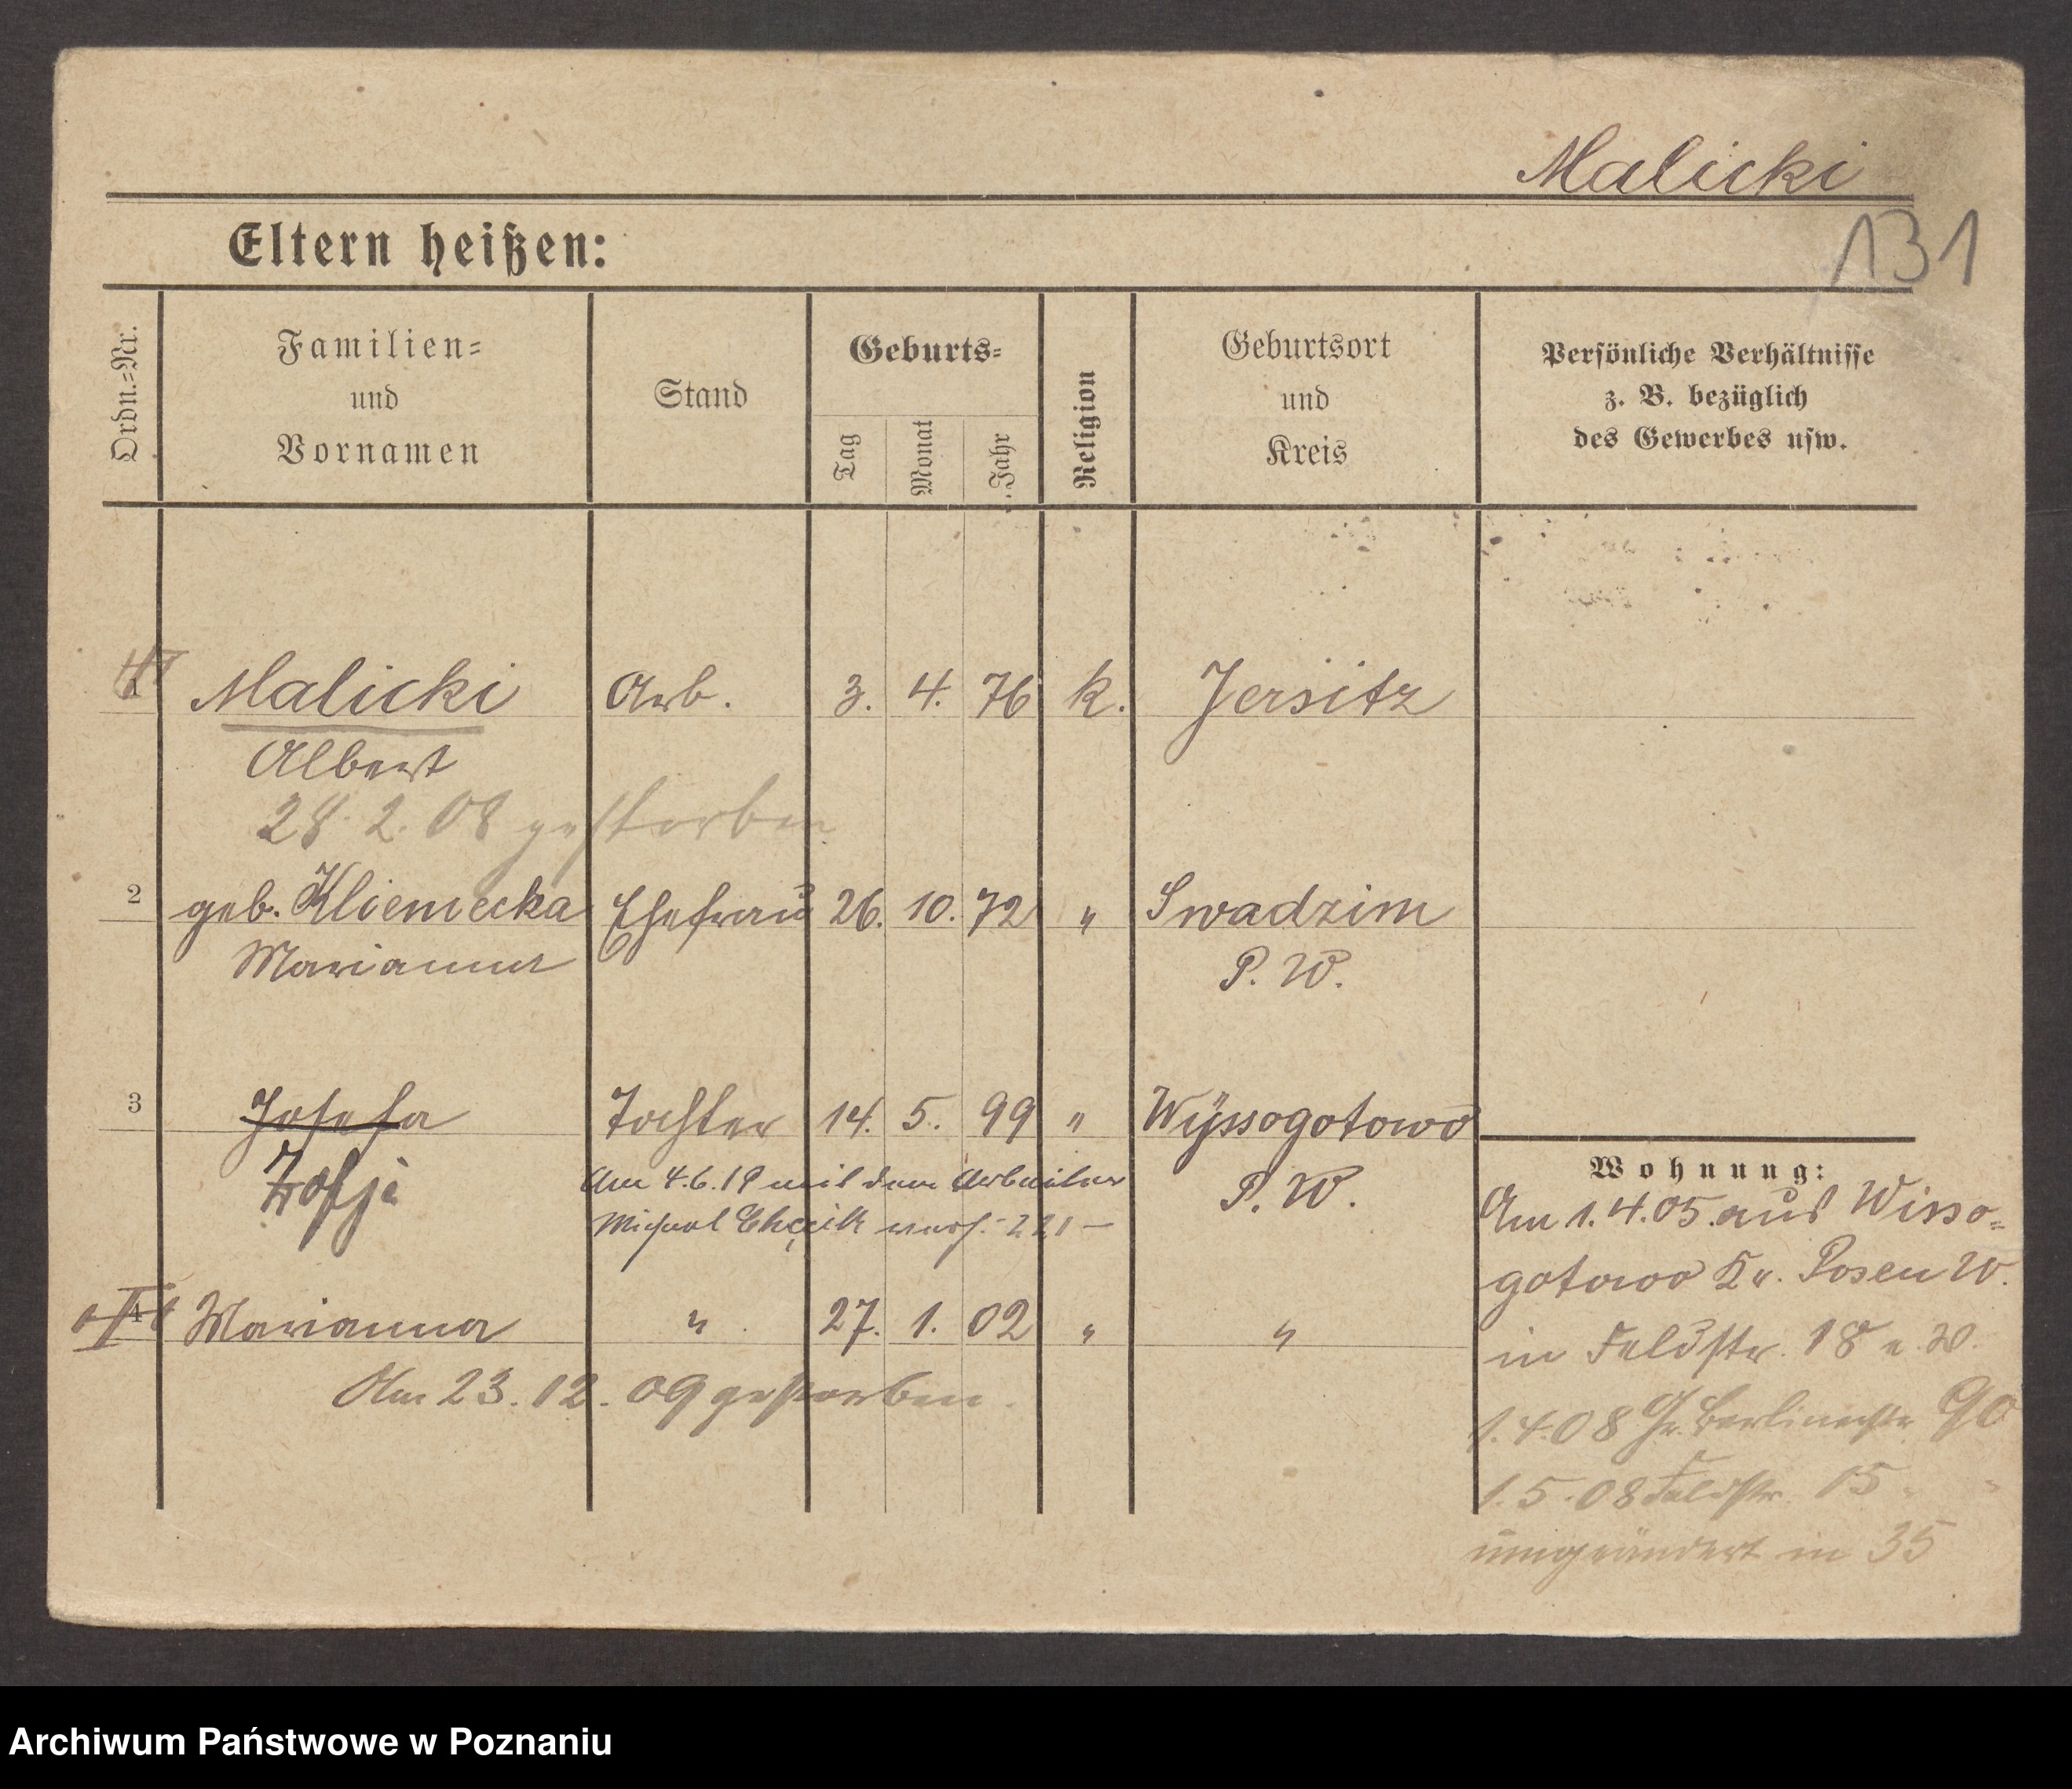 Malicki
131
Eltern heißen:
Ordn.=Nr.
Familien=
und
Vornamen
Stand
Geburts=
Tag
Monat
Jahr
Religion
Geburtsort
und
Kreis
Persönliche Verhältnisse
z. B. bezüglich
des Gewerbes usw.
1 Malicki Arb. 3. 4. 76 k. Jersitz
Albert
28. 2. 08 gestorben
2 geb. Kliemecka Ehefrau 26. 10. 72 " Swadzim
Marianna P. W.
3 Josefa Tochter 14. 5. 99 " Wyssogotowo
Zofja P. W.
Am 4.6.19 mit dem Arbeiter
Michael verh. 221 —
4 Marianna " 27. 1. 02 " "
Am 23. 12. 09 gestorben.
Wohnung:
Am 1.4.05. aus Wisso=
gotowo Kr. Posen W.
in Feldstr. 18
1.4.08 Gr. Berlinerstr 90
1.5.08 Feldstr. 15
umgeändert in 35
Archiwum Państwowe w Poznaniu